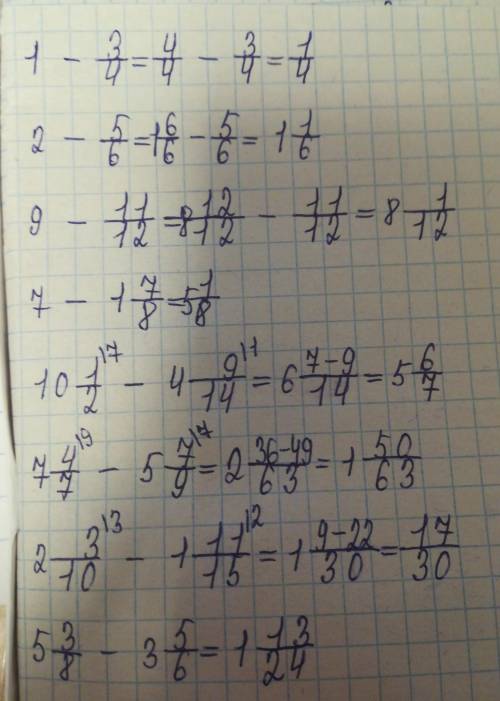 1 - 3/4 = 4/4 - 3/4 = 1/4
2 - 5/6 = 1 6/6 - 5/6 = 1 1/6
9 - 11/12 = 8 12/12 - 11/12 = 8 1/12
7 - 1 7/8 = 5 1/8
10 1/2 ^17 - 4 9/14 ^11 = 6 (7-9)/14 = 5 6/7
7 4/7 ^19 - 5 7/9 ^17 = 2 (36-49)/63 = 1 50/63
2 3/10 ^13 - 1 11/15 ^12 = 1 (9-22)/30 = 17/30
5 3/8 - 3 5/6 = 1 13/24